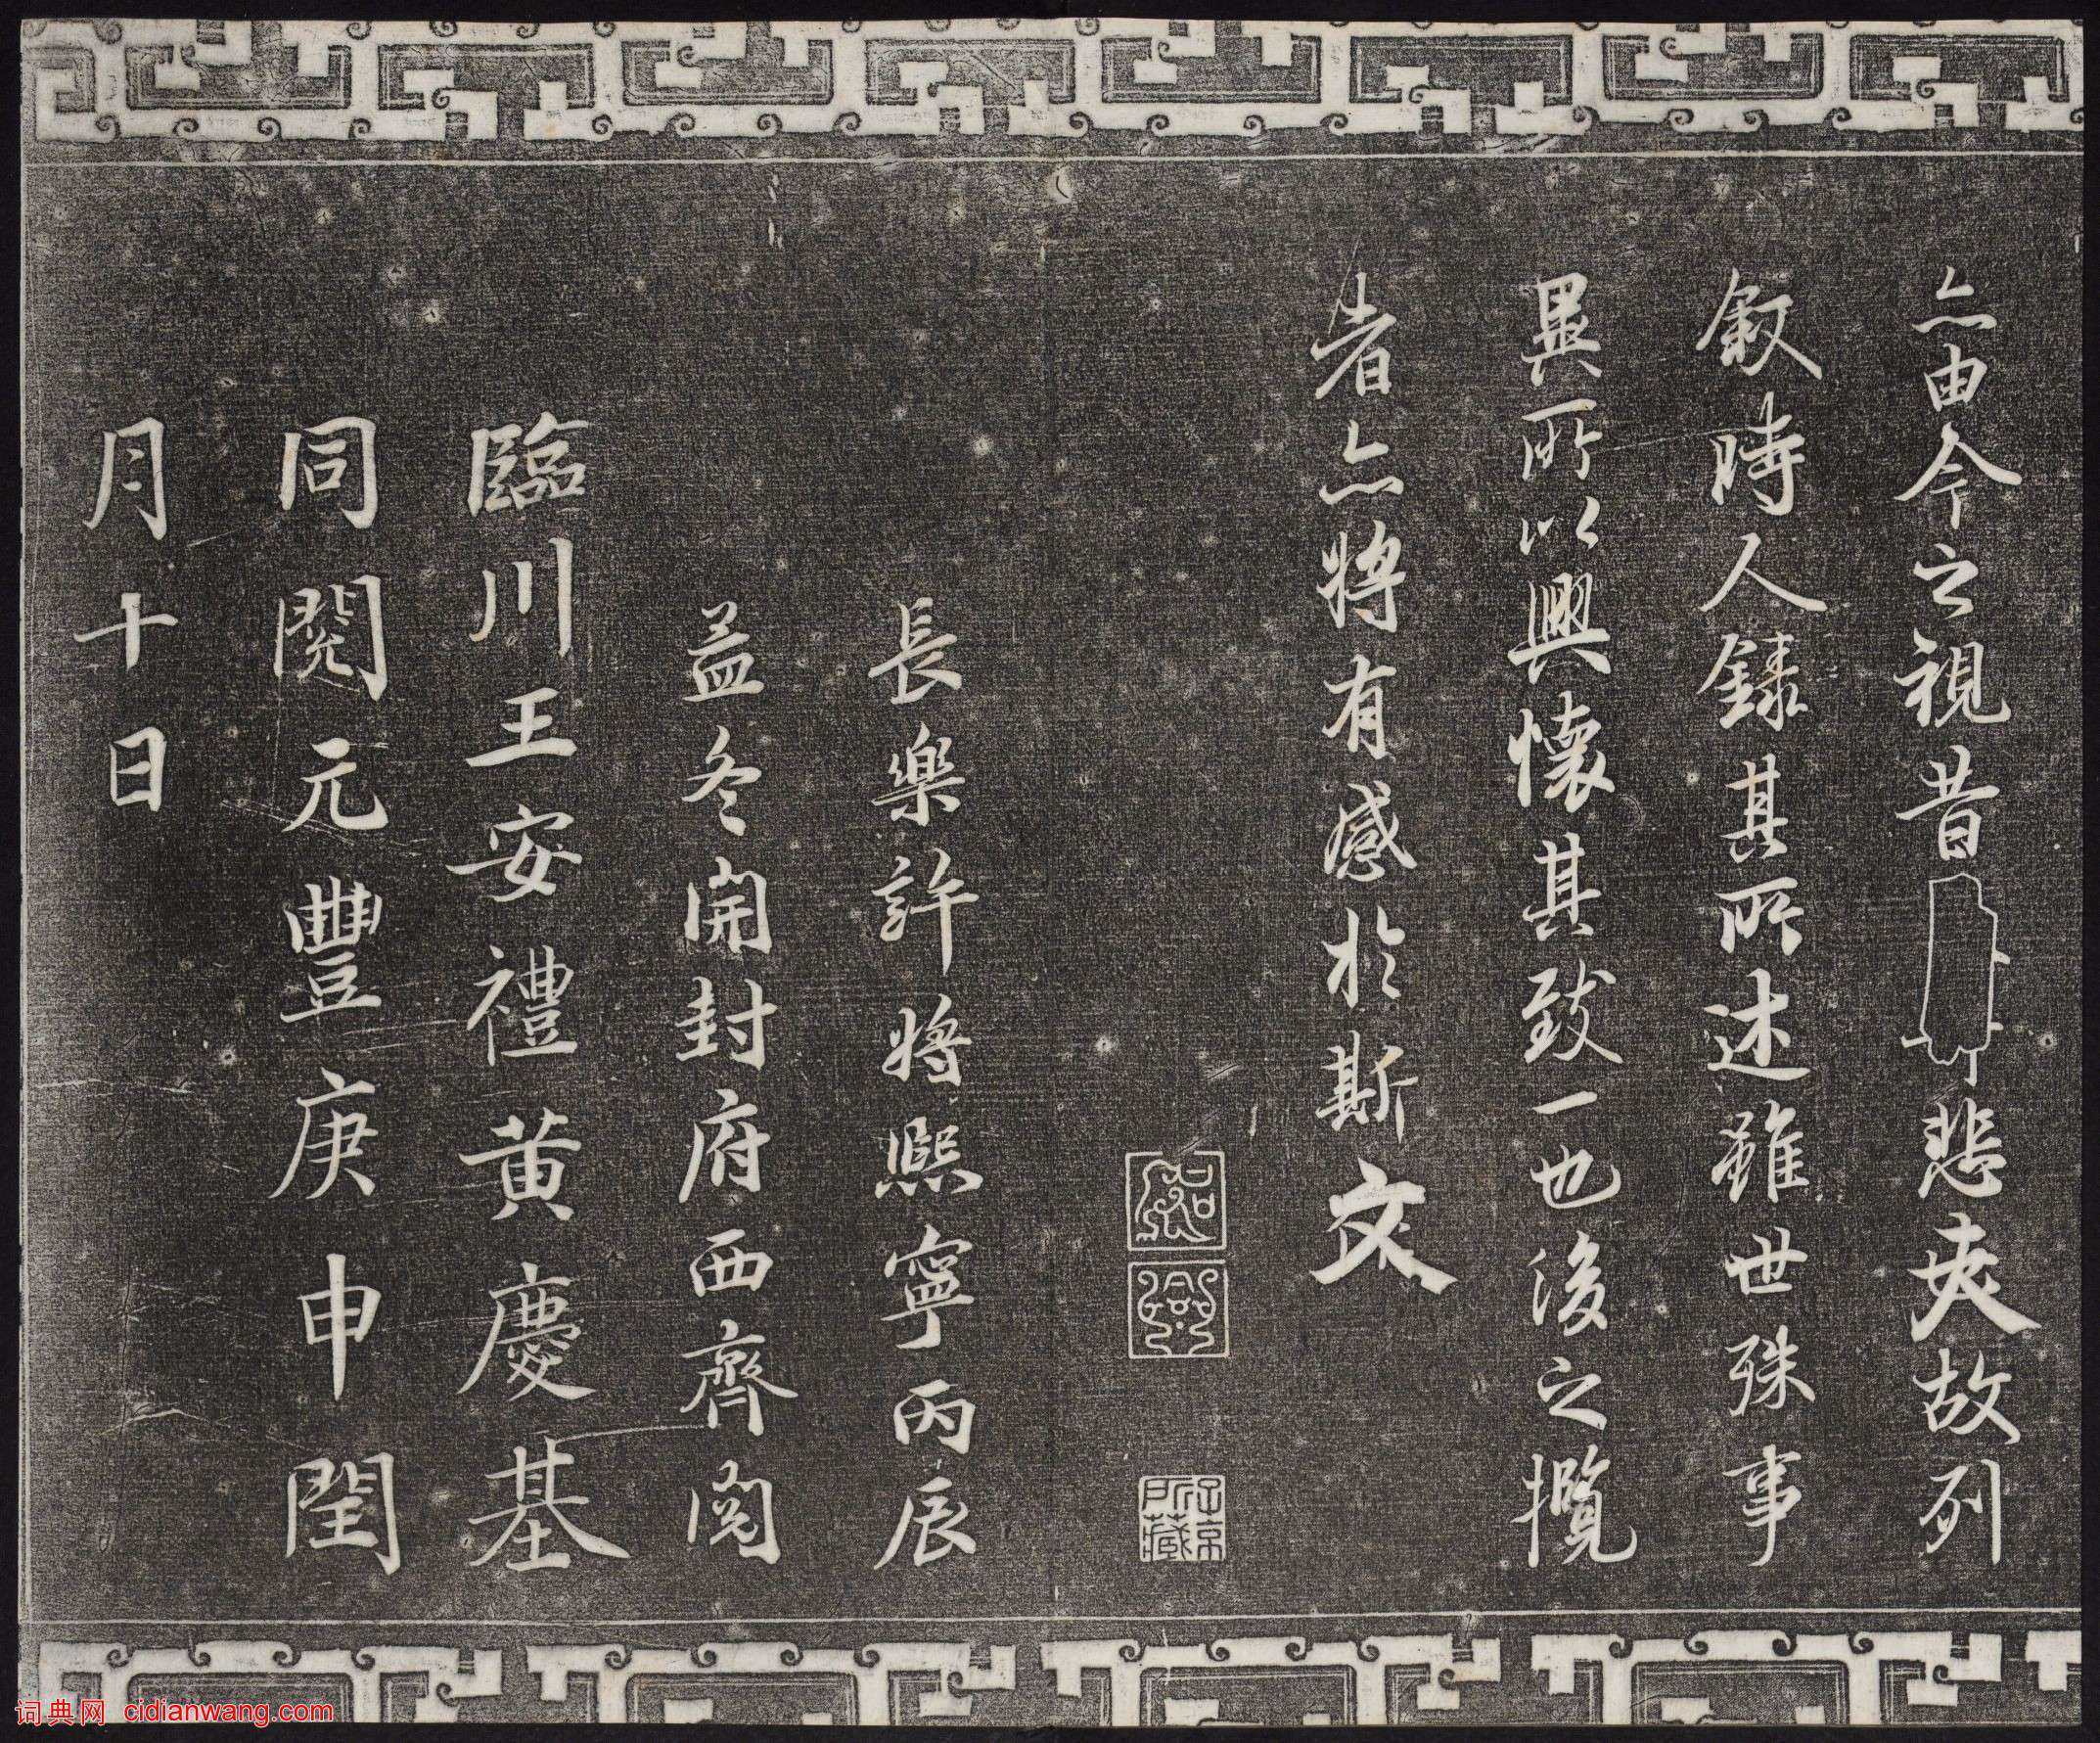 亦由今之視昔悲夫故列
敘時人錄其所述雖世殊事
異所以興懷其致一也後之攬
者亦將有感於斯文
子京所藏
長樂許將熙寧丙辰
孟冬開封府西齊閱
臨川王安禮黃慶基
同閱元豐庚申閏
月十日
词典网 cidianwang.com